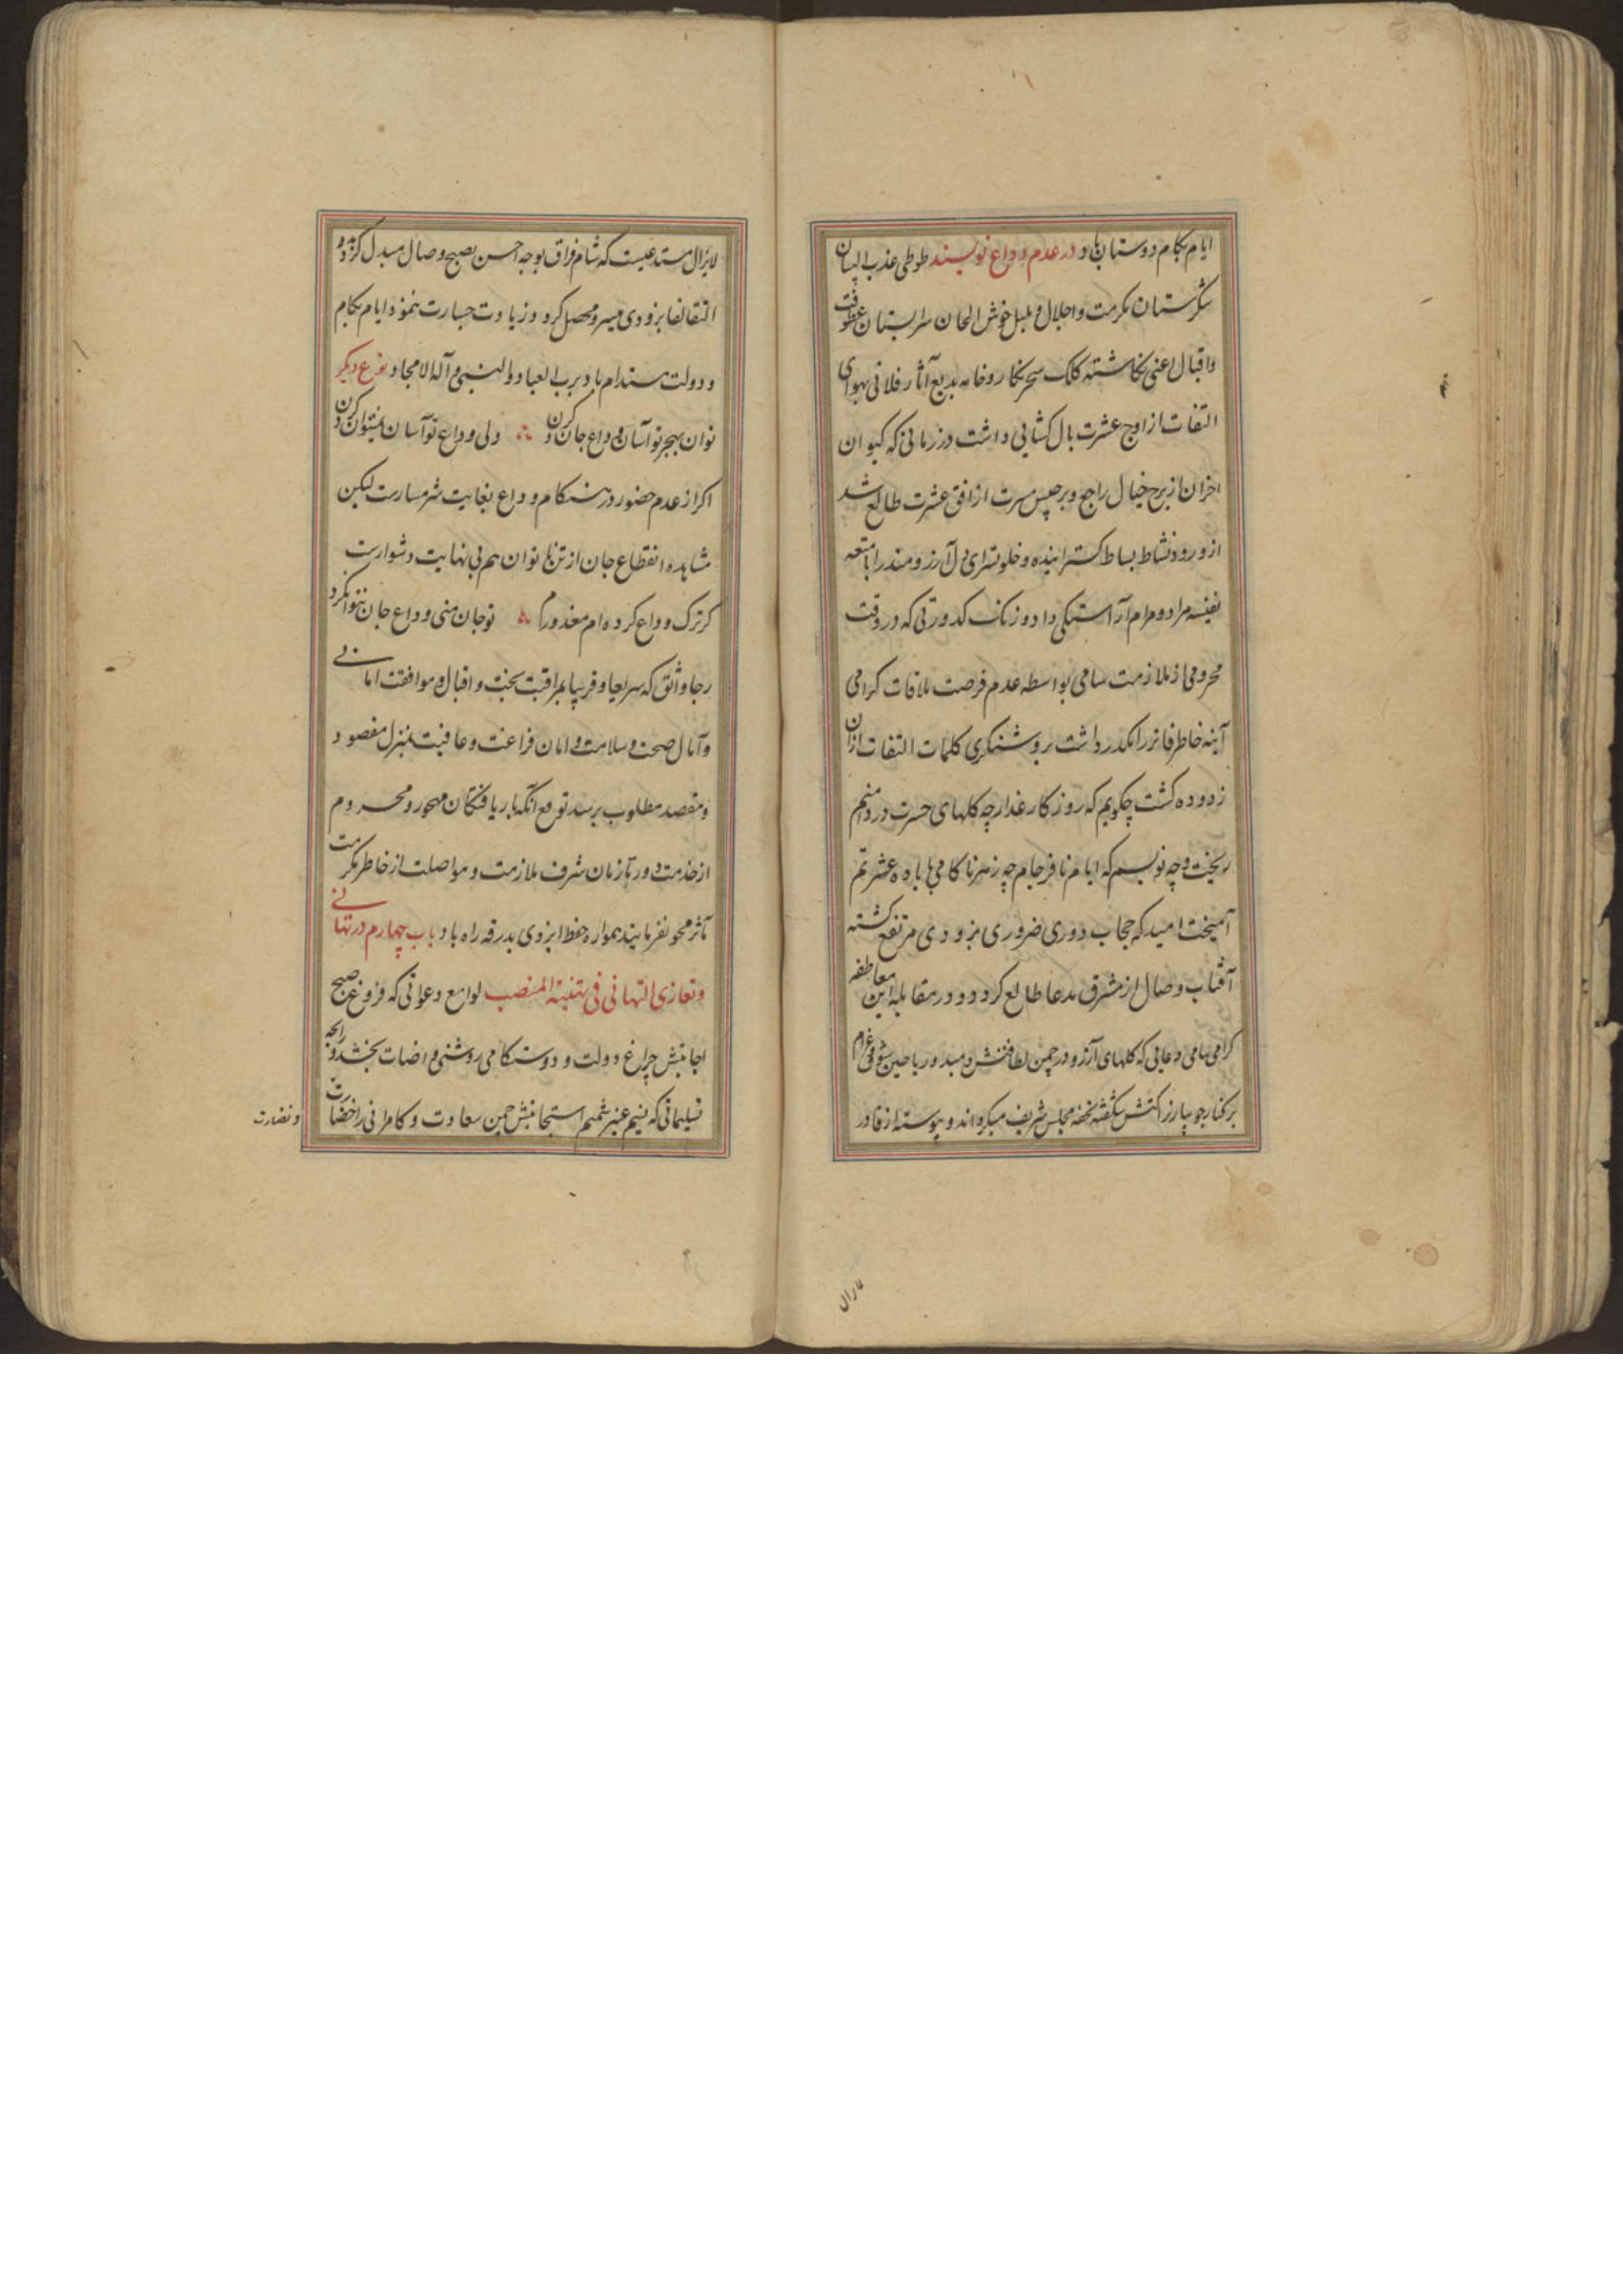 ایام بکام دوستان باد در عدم وداع نویسند طوطی عذب البیان
شکرستان مکرمت و اجلال و بلبل خوش الحان سرابستان عطوفت
و اقبال اعنی نکاشته کلک سحر نکار و خامه بدیع آثار فلانی بهوای
التفات از اوج عشرت بال کشایی داشت در زمانی که کیوان
احزان از برج خیال راجع و برجیس مسرت از افق عشرت طالع شد
از ورود نشاط بساط کسترانیده و خلوتسرای دل آرزومند را بامتعه
نفیسه مراد و مرام آراستکی داد و زنک کدورتی که در وقت
محرومی از ملازمت سامی بواسطه عدم فرصت ملاقات کرامی
آینه خاطر فاتر را مکدر داشت بروشنکری کلمات التفات ازان
زدوده کشت چکویم که روزکار غدار چه کلهای حسرت در دامنم
ریخت و چه نویسم که ایام نافرجام چه زهر ناکامی با باده عشرتم
آمیخت امید که حجاب دوری ضروری بزودی مرتفع کشته
آفتاب وصال از مشرق مدعا طالع کردد و در مقابله این معاطفه
کرامی سامی دعایی که کلهای آرزو در چمن لطافتش دمید و ریاحین شوق و غرام
بر کنار جویبار نزاکتش شکفته تحفه مجلس شریف میکرداند و پیوسته از قادر
لایزال مستدعیست که شام فراق بوجه احسن بصبح وصال مبدل کردد و
التقا بزودی میسر و محصل کردد زیادت جسارت ننمود ایام بکام
و دولت مستدام باد برب العباد و النبی و آله الامجاد نوع دیکر
توان بهجر تو آسان وداع جان کردن ولی وداع تو آسان نمیتوان کردن
اکر از عدم حضور در هنکام وداع بغایت شرمسارست لیکن
مشاهده انقطاع جان از تن ناتوان هم بی نهایت دشوارست
کر ترک وداع کرده ام معذورم تو جان منی وداع جان نتوان کرد
رجا واثق که سریعا و قریبا بمراقبت بخت و اقبال و موافقت امانی
و آمال صحت و سلامت و امان فراغت و عافیت بمنزل مقصود
و مقصد مطلوب برسد توقع آنکه باریافتکان مهجور و محروم
از خدمت دور تا زمان شرف ملازمت و مواصلت از خاطر مکرمت
مآثر محو نفرمایند همواره حفظ ایزدی بدرقه راه باد باب چهارم در تهانی
و تعازی التهانی فی تهنیة المنصب لوامع دعواتی که فروغ صبح
اجابتش چراغ دولت و دوستکامی روشنی و اضات بخشد و رایحه
تسلیماتی که نسیم عنبر شمیم استجابتش چمن سعادت و کامرانی را خضارت
و نضارت